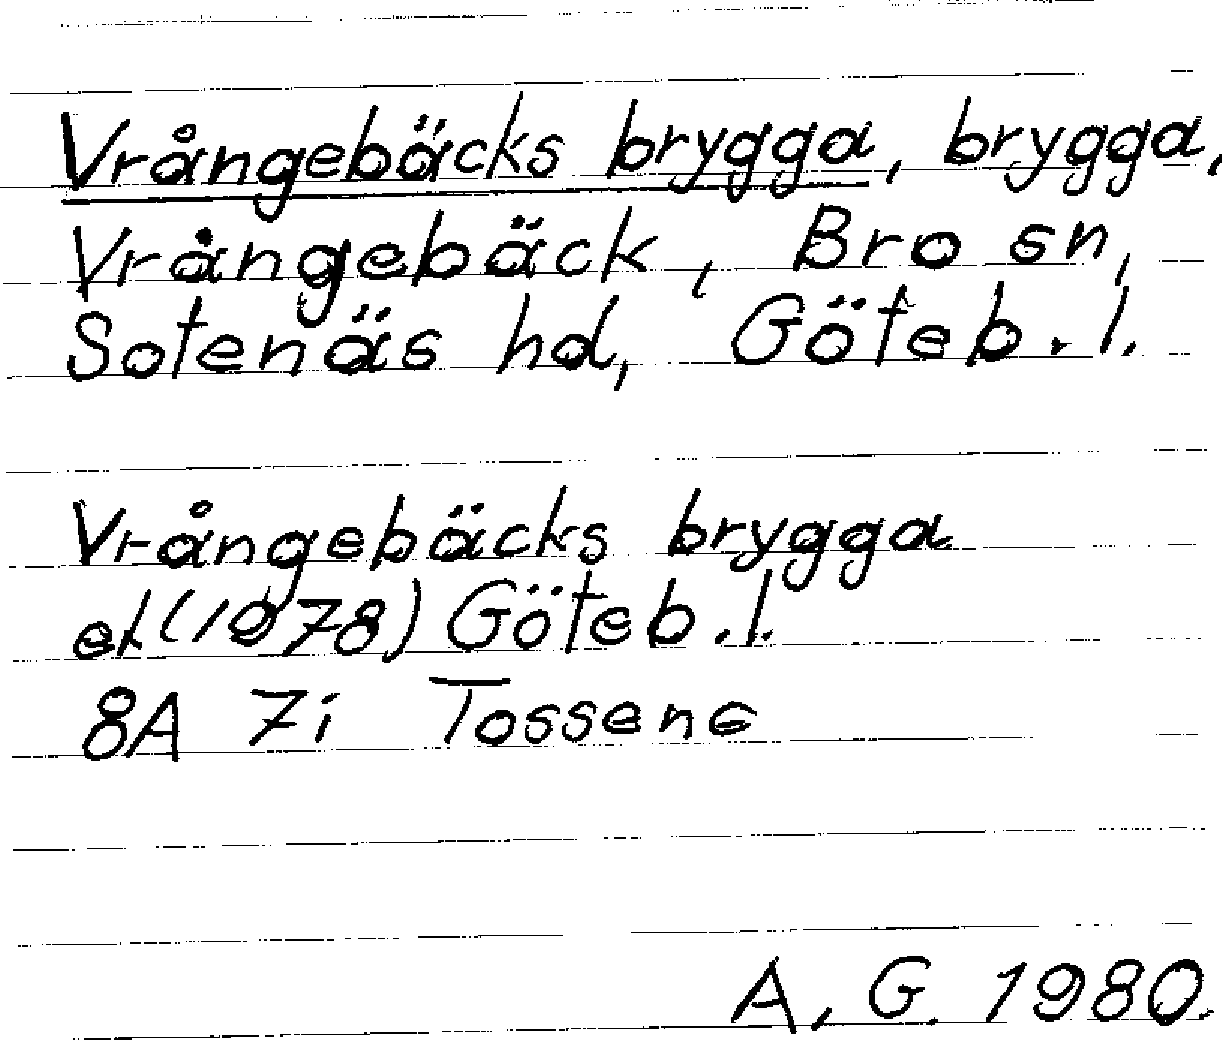 Vrångebäcks brygga, brygga,
Vrångebäck, Bro sn,
Sotenäs hd, Göteb. l.
Vrångebäcks brygga
ek (1978) Göteb. l.
8A 7i Tossene
A. G. 1980.